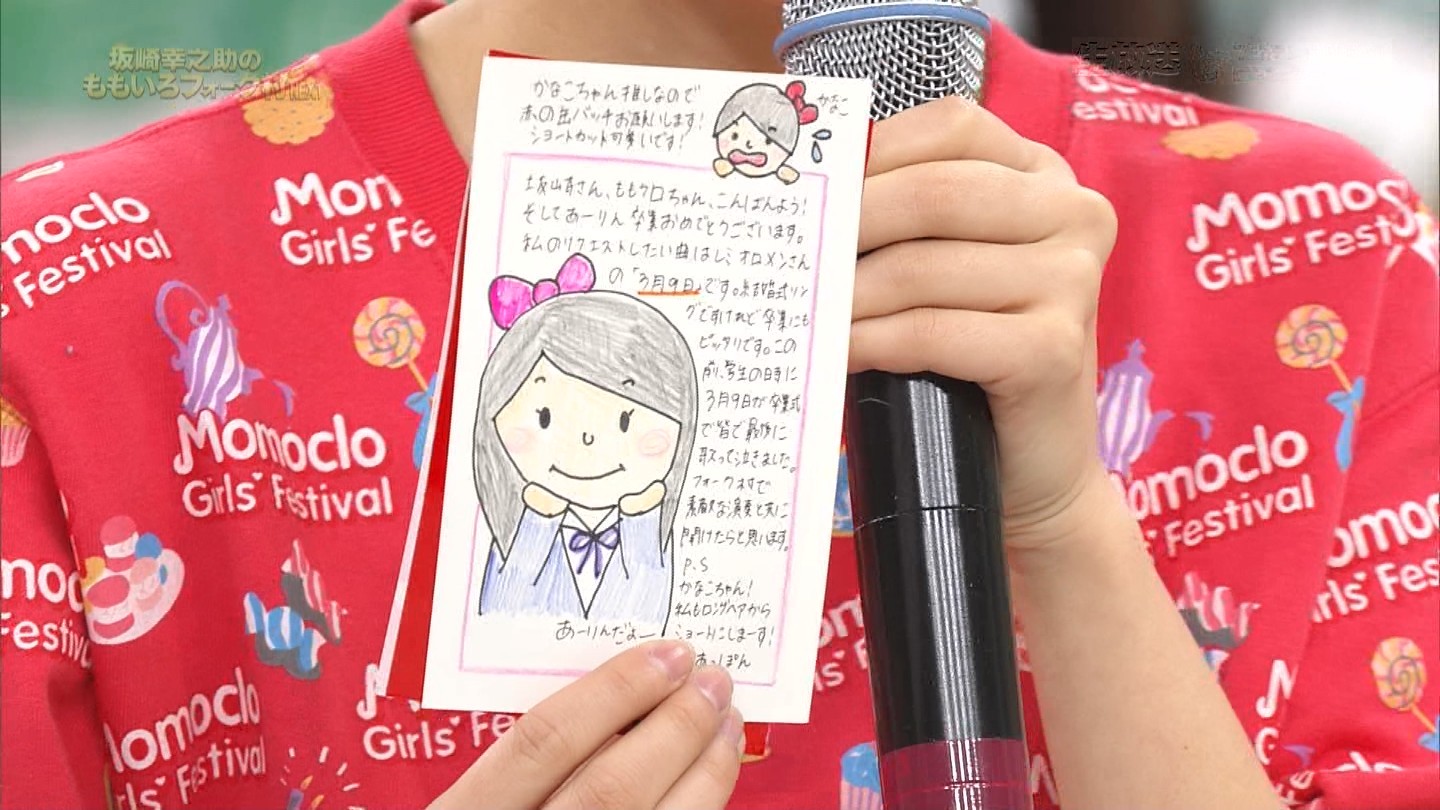 坂崎幸之助の
ももいろフォーク村NEXT
生放送
かなこちゃん推しなので
赤の缶バッチお願いします!
ショートカット可愛いです!
かなこ
坂崎さん、ももクロちゃん、こんばんよう!
そしてあーりん卒業おめでとうございます。
私のリクエストしたい曲はレミオロメンさん
の「3月9日」です。結婚式ソン
グですけれど卒業にも
ピッタリです。この
前、学生の時に
3月9日が卒業式
で皆で最後に
歌って泣きました。
フォーク村で
素敵な演奏と共に
聞けたらと思います。
P.S
かなこちゃん!
私もロングヘアから
ショートにしまーす!
あっぽん
あーりんだよー
Momoclo
Girls' Festival
Mon
Girls' Fe
Momoclo
Girls' Festival
Momoclo
Girls' Festival
Girls' Festival
estival
Momos
Girls' Festi
omoclo
Festival
omo
irls' Fes